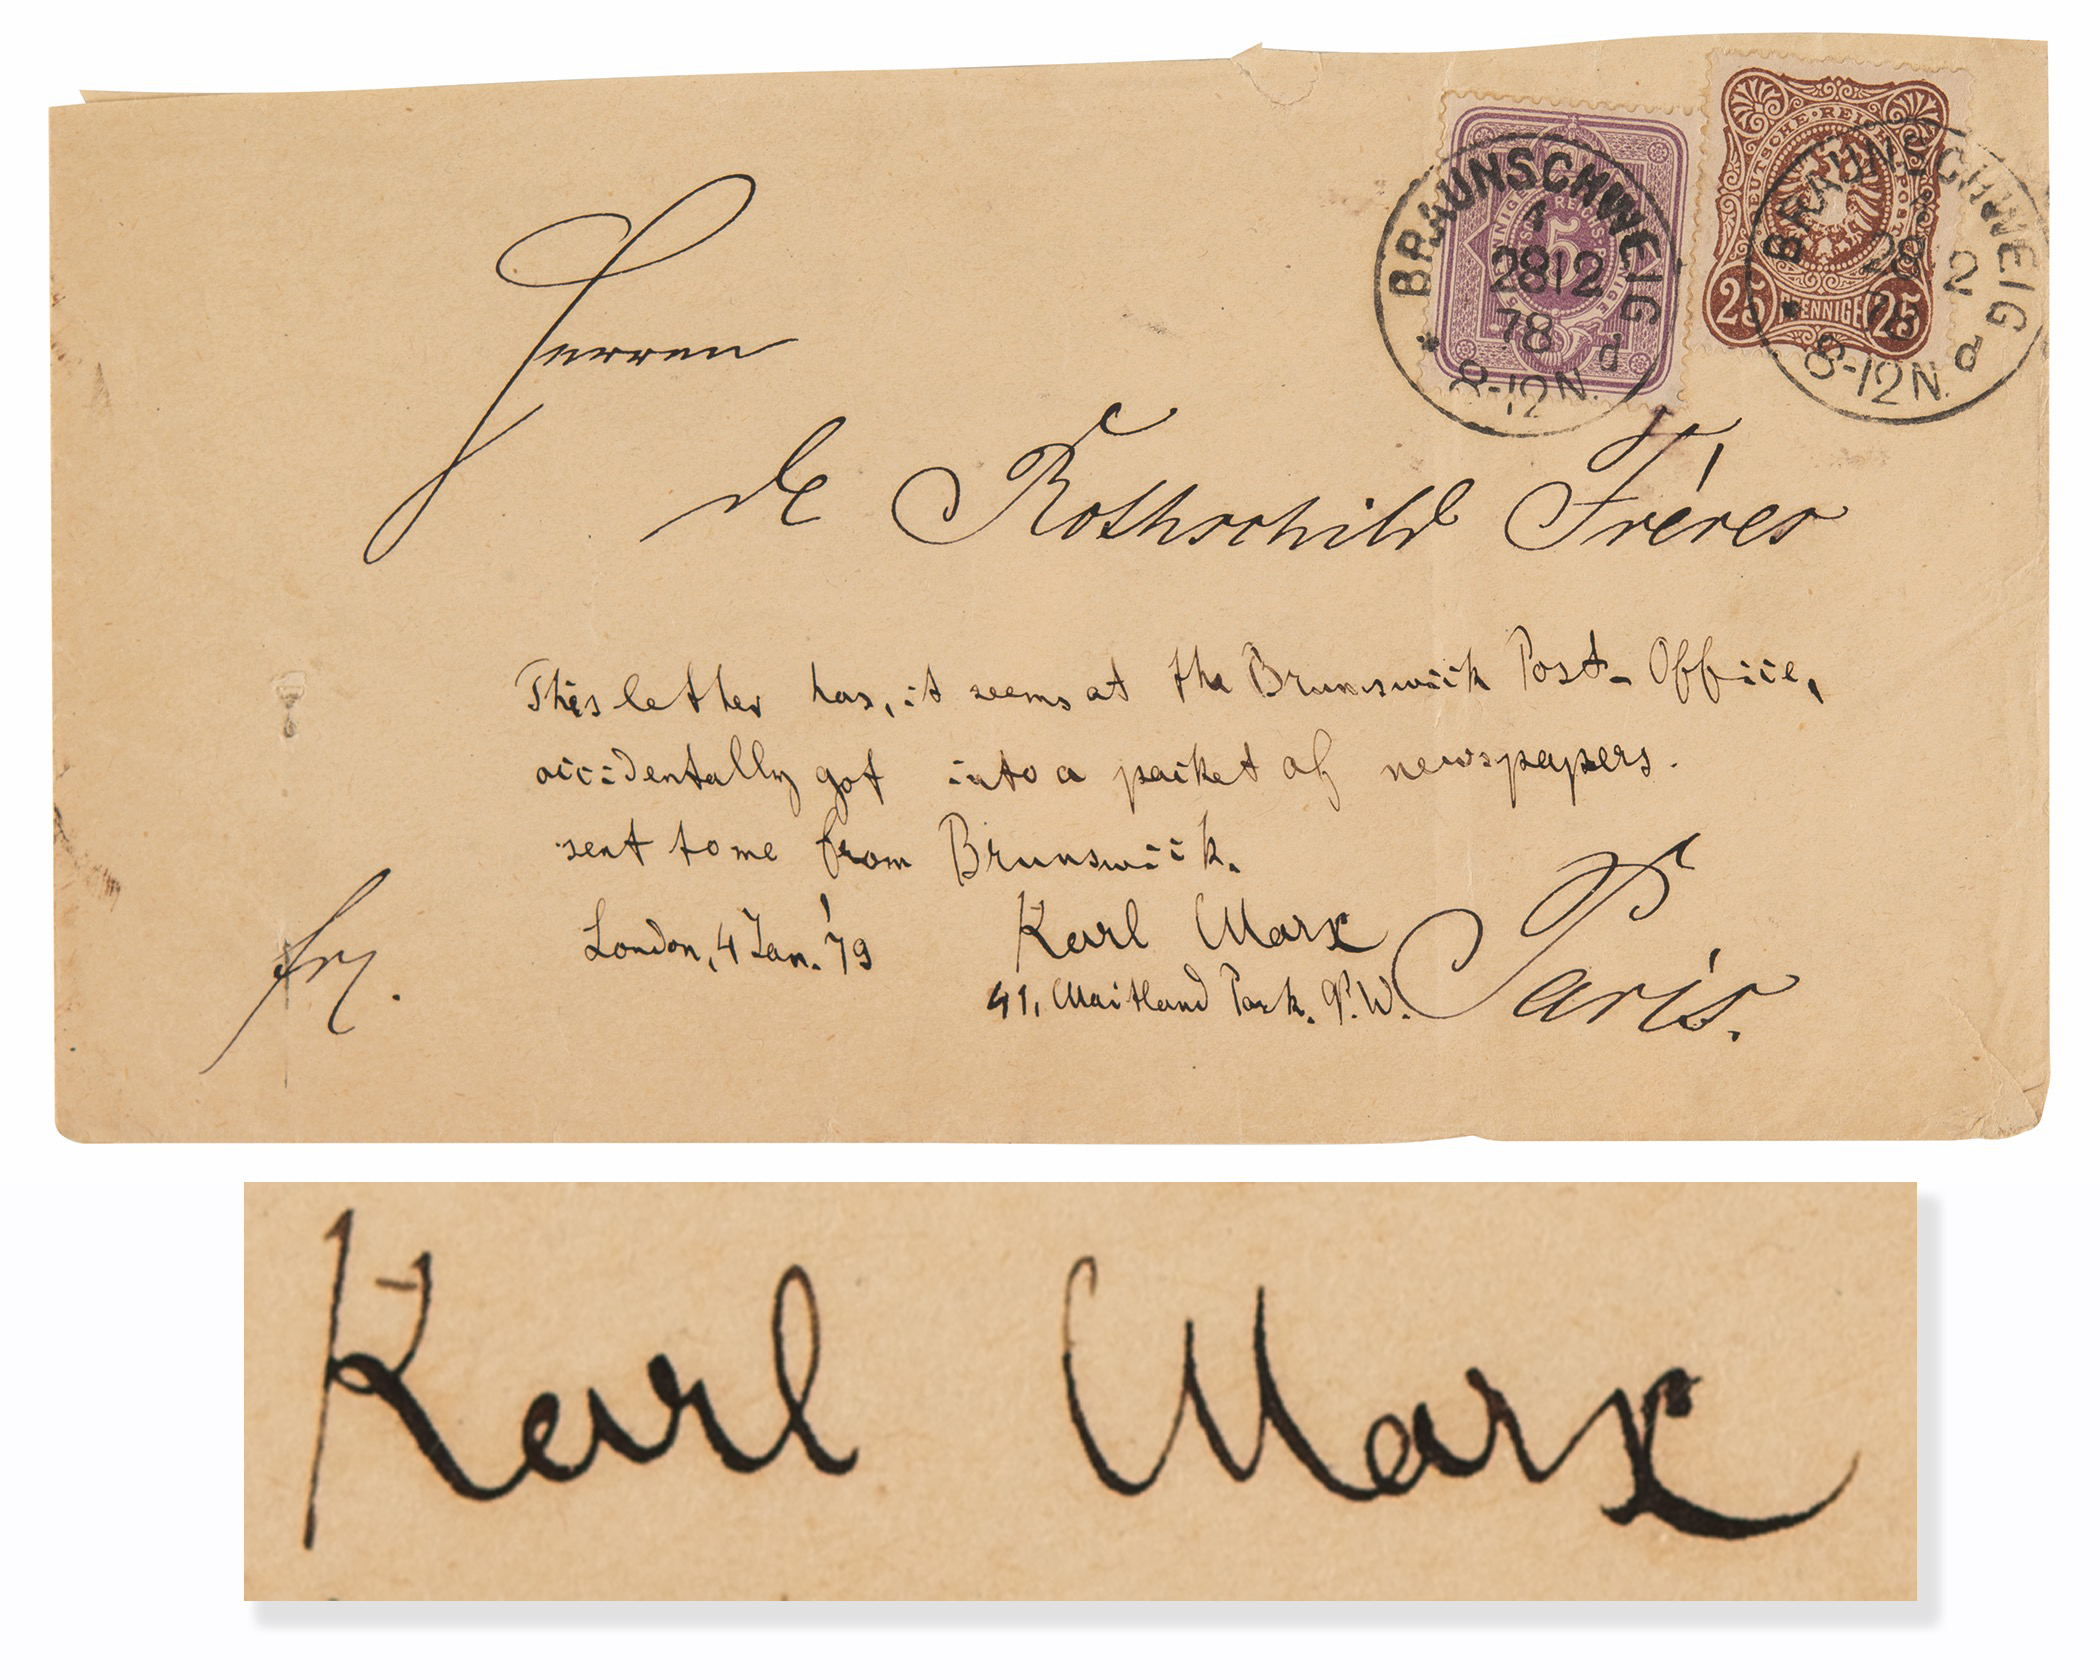 BRAUNSCHWEIG
1
2812
78
* d
8-12N.
5
DEUTSCHE·REICHS·POST
25 PFENNIGE 25
BRAUNSCHWEIG
28 2
78
* d
8-12N.
Herren
de Rothschild Fréres
This letter has, it seems at the Brunswick Post-Office,
accidentally got into a packet of newspapers.
sent to me from Brunswick.
London, 4 Jan. '79 Karl Marx
41, Maitland Park. N.W.
fr. Paris.
Karl Marx